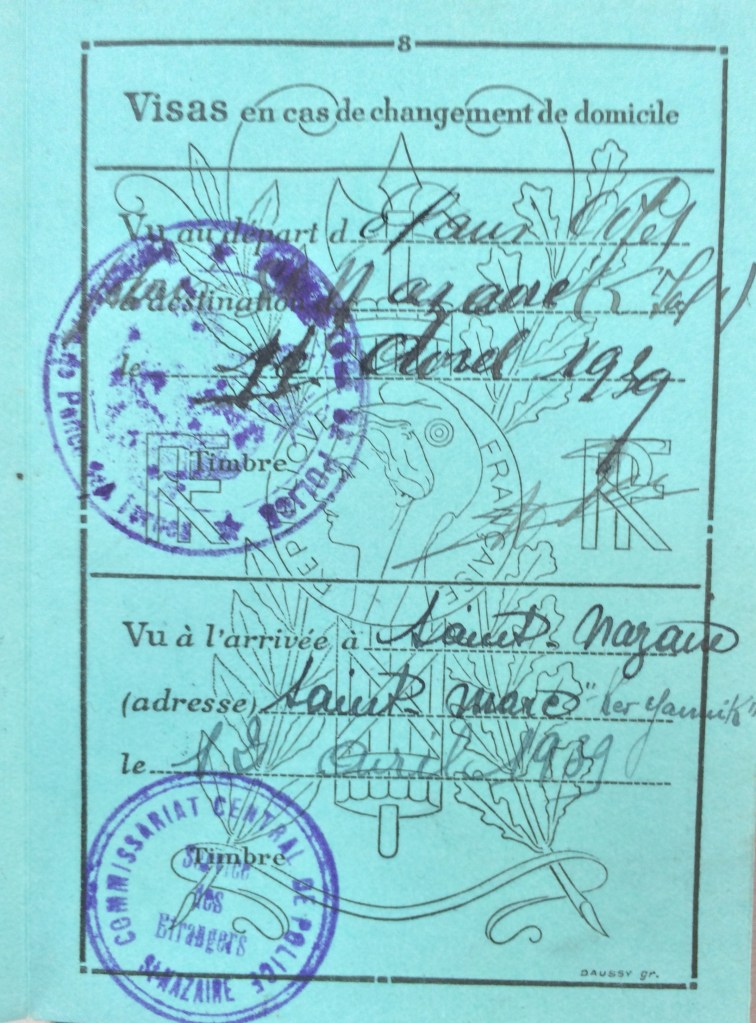 8
Visas en cas de changement de domicile
Vu au départ d
à destination St Nazaire
le 11 Avril 1939
Timbre
RF
RF
RÉPUBLIQUE FRANÇAISE
POLICE
Vu à l'arrivée à Saint-Nazaire
(adresse) Saint Marc "Ker Yannik"
le 12 avril 1939
Timbre
COMMISSARIAT CENTRAL DE POLICE
Service
des
Etrangers
St NAZAIRE
DAUSSY gr.